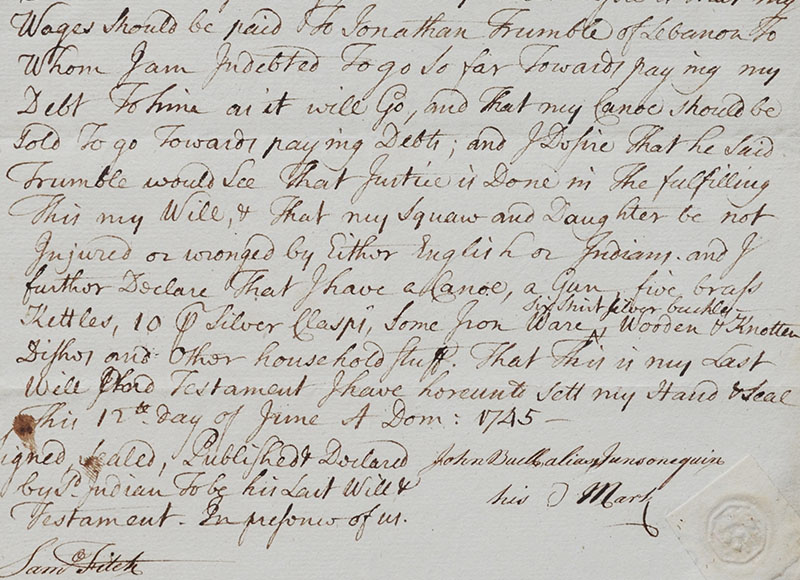 Wages should be paid To Jonathan Trumble of Lebanon To
Whom I am Indebted To go so far Towards paying my
Debt To him as it will Go, and That my Canoe should be
Sold To go Towards paying Debts; and I Desire That he said
Trumble would See That Justice is Done in The fulfilling
This my Will, & That my Squaw and Daughter be not
Injured or wronged by Either English or Indians. and I
further Declare That I have a Canoe, a Gun, five brass
six Shirt silver buckles
Kettles, 10 pr Silver Clasps, Some Iron Ware, ^ Wooden & Knotten
Dishes and Other household stuff. That This is my Last
Will and Testament I have hereunto Sett my Hand & Seal
This 12th day of June A Dom: 1745 —
Signed, Sealed, Published & Declared
John Buck alias
by sd Indian To be his Last Will &
his Mark
Testament. In presence of us.
Sam Fitch